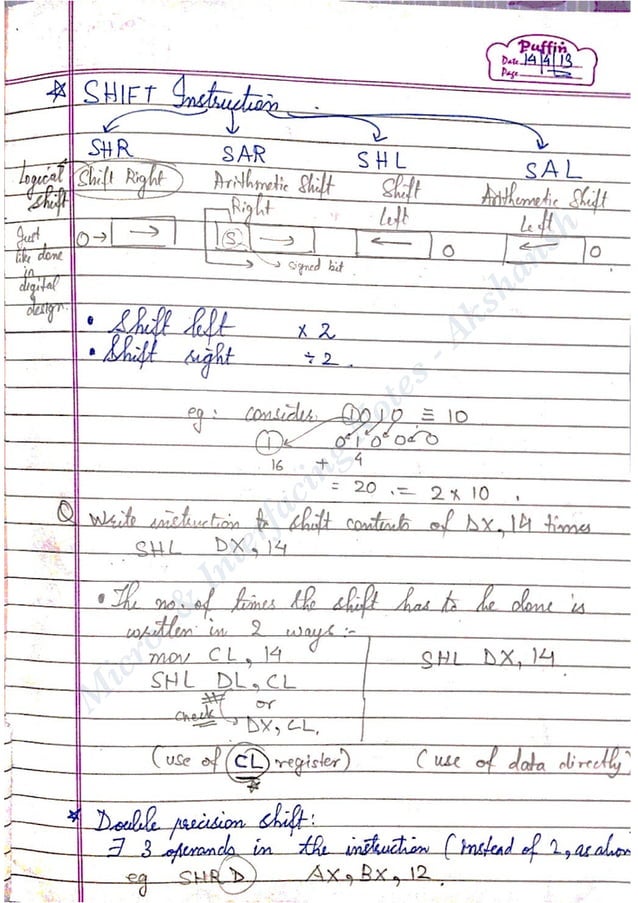 Puffin
Date 14/4/13
Page
* SHIFT Instruction
SHR SAR SHL SAL
Logical Shift
Shift Right
Arithmetic Shift Right
Shift Left
Arithmetic Shift Left
Just like done in digital design.
0→ → S → ← 0 ← 0
→ signed bit
• Shift left × 2
• Shift right ÷ 2
eg: consider 1010 ≡ 10
1 0 1 0 0
16 + 4
= 20 .= 2 × 10 .
Q Write instruction to shift contents of DX, 14 times
SHL DX, 14
• The no. of times the shift has to be done is
written in 2 ways :-
mov CL, 14
SHL DL, CL
or
check → DX, CL.
(use of CL register)
SHL DX, 14
(use of data directly)
* Double precision shift:
∃ 3 operands in the instruction (instead of 2, as
eg SHRD AX, BX, 12.
Notes - Akshansh